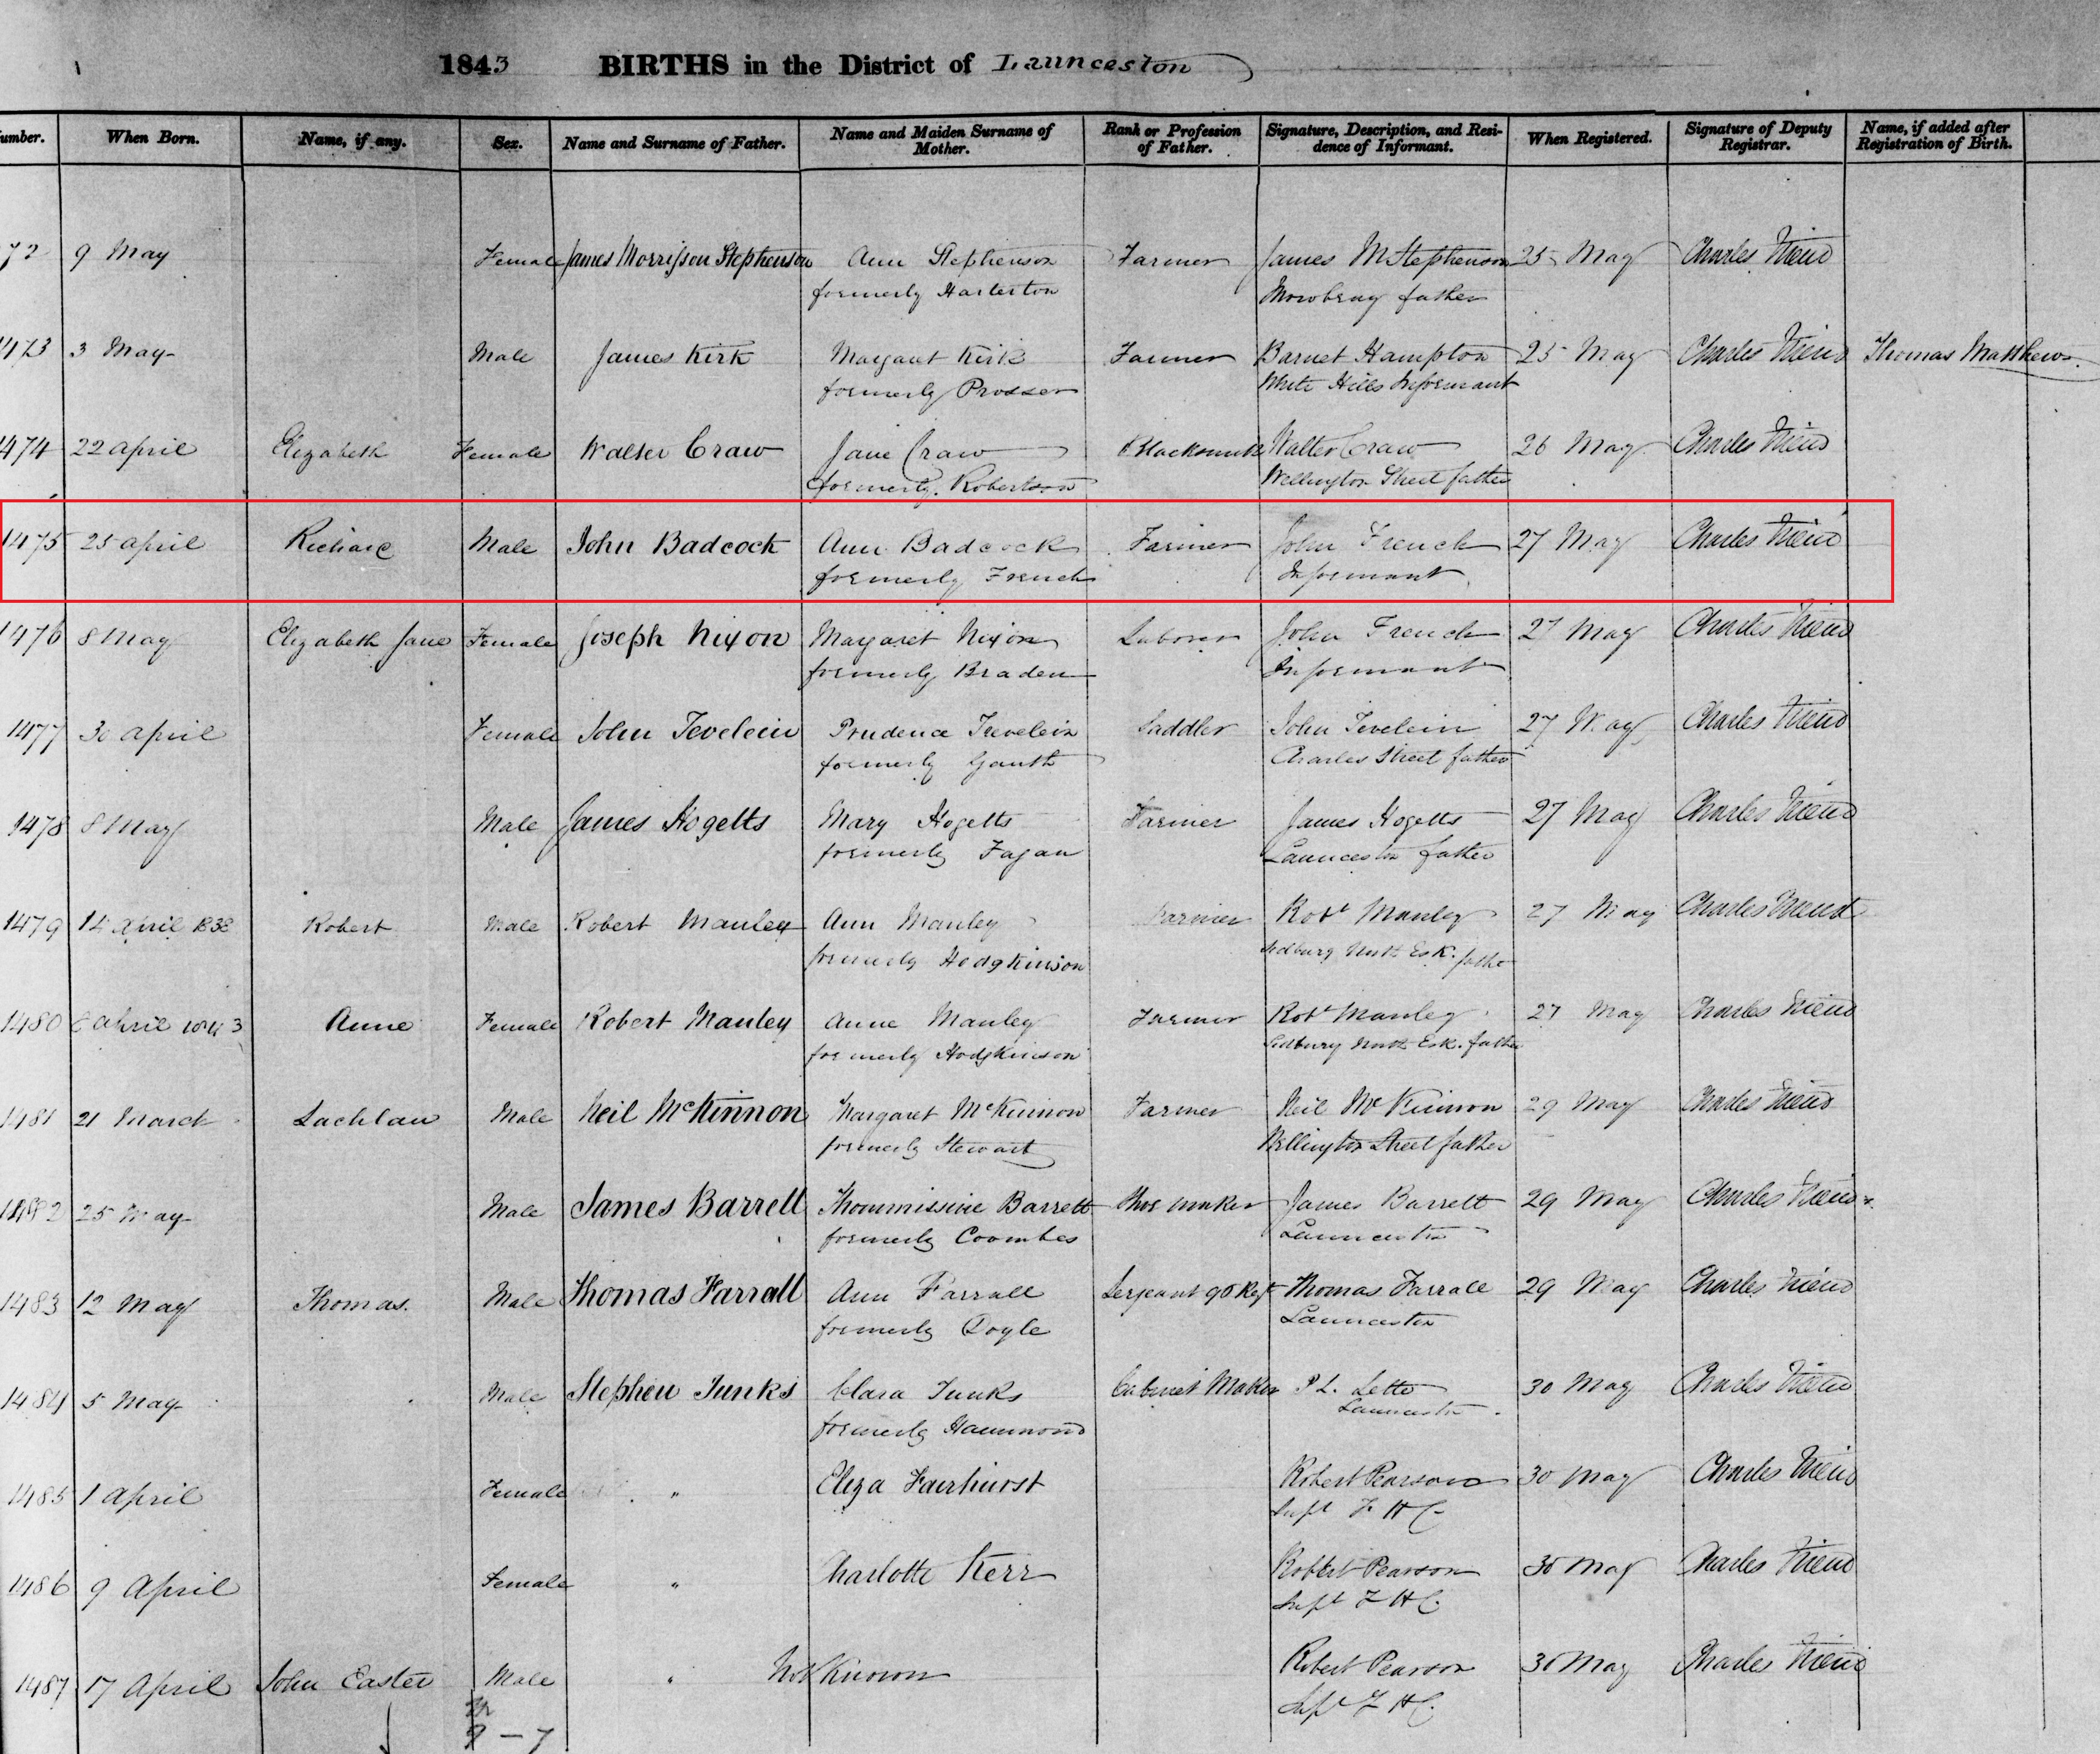 1843 BIRTHS in the District of Launceston
umber. When Born. Name, if any. Sex. Name and Surname of Father. Name and Maiden Surname of Mother. Rank or Profession of Father. Signature, Description, and Residence of Informant. When Registered. Signature of Deputy Registrar. Name, if added after Registration of Birth.
72 9 May Female James Morrisson Stephenson Ann Stephenson Farmer James M Stephenson 25 May Charles Friend
formerly Mowbray father
1473 3 May Male James Kirk Margaret Kirk Farmer Barnet Hampton 25 May Charles Friend Thomas Matthew
formerly Prosser White Hills Informant
1474 22 April Elizabeth Female Walter Craw Jane Craw Blacksmith Walter Craw 26 May Charles Friend
formerly Robertson Wellington Street father
1475 25 April Richard Male John Badcock Ann Badcock Farmer John French 27 May Charles Friend
formerly French Informant
1476 8 May Elizabeth Jane Female Joseph Nixon Margaret Nixon Laborer John French 27 May Charles Friend
formerly Braden Informant
1477 30 April Female John Tevelein Prudence Saddler John Tevelein 27 May Charles Friend
formerly Charles Street father
1478 8 May Male James Hogetts Mary Hogetts Farmer James Hogetts 27 May Charles Friend
formerly Fagan Launceston father
1479 14 April 1838 Robert Male Robert Manley Ann Manley Farmer Robt Manley 27 May Charles Friend
formerly Hodgkinson Sidbury North Esk. father
1480 April 1843 Anne Female Robert Manley Anne Manley Farmer Robt Manley 27 May Charles Friend
formerly Hodgkinson Sidbury North Esk. father
1481 21 March Lachlan Male Neil McKinnon Margaret McKinnon Farmer Neil McKinnon 29 May Charles Friend
formerly Stewart Wellington Street father
1482 25 May Male James Barrett Thommissine Barrett Shoe maker James Barrett 29 May Charles Friend
formerly Coombes Launceston
1483 12 May Thomas. Male Thomas Farrall Ann Farrall Sergeant 96 Regt Thomas Farrall 29 May Charles Friend
formerly Doyle Launceston
1484 5 May Male Stephen Junks Clara Junks Cabinet Maker P L. Lette 30 May Charles Friend
formerly Hammond Launceston
1485 1 April Female " Eliza Fairhurst Robert Pearson 30 May Charles Friend
Supt F H C
1486 9 April Female " Charlotte Kerr Robert Pearson 30 May Charles Friend
Supt F H C.
1487 17 April John Easter Male " Not Known Robert Pearson 30 May Charles Friend
Supt F H C.
9 - 7